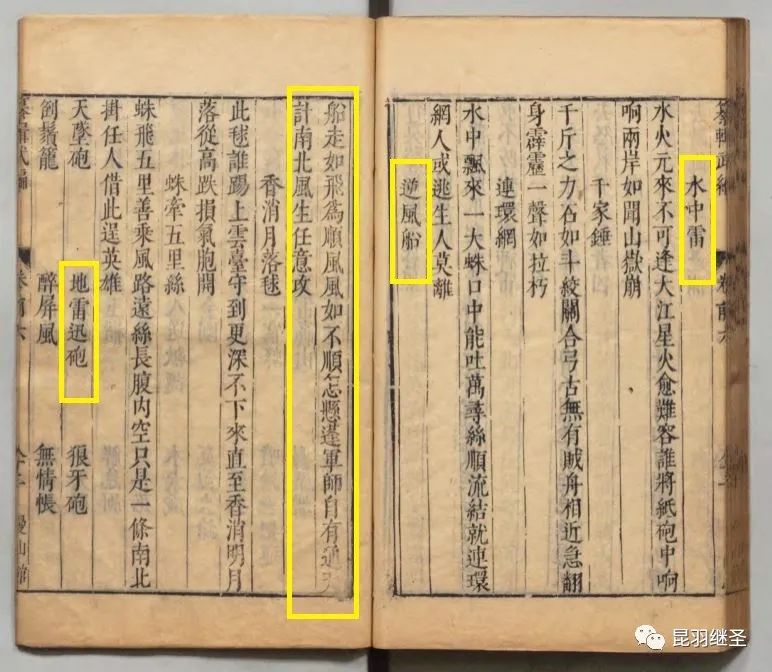 水中雷
水火元來不可逢大江星火愈難容誰將紙砲中响
响兩岸如聞山嶽崩
千家錘
千斤之力石如斗絞關合弓古無有賊舟相近急翻
身霹靂一聲如拉朽
連環網
水中飄來一大蛛口中能吐萬尋絲順流結就連環
網人或逃生人莫離
逆風船
船走如飛為順風風如不順怎懸違軍師自有通天
計南北風生任意攻
香消月落毬
此毬誰踢上雲臺守到更深不下來直至香消明月
落從高跌損氣胞開
蛛牽五里絲
蛛飛五里善乘風路遠絲長腹內空只是一條南北
掛任人借此逞英雄
天墜砲 地雷迅砲 狼牙砲
鬍籠 醉屏風 無情帳
武編
曼山館
昆羽继圣